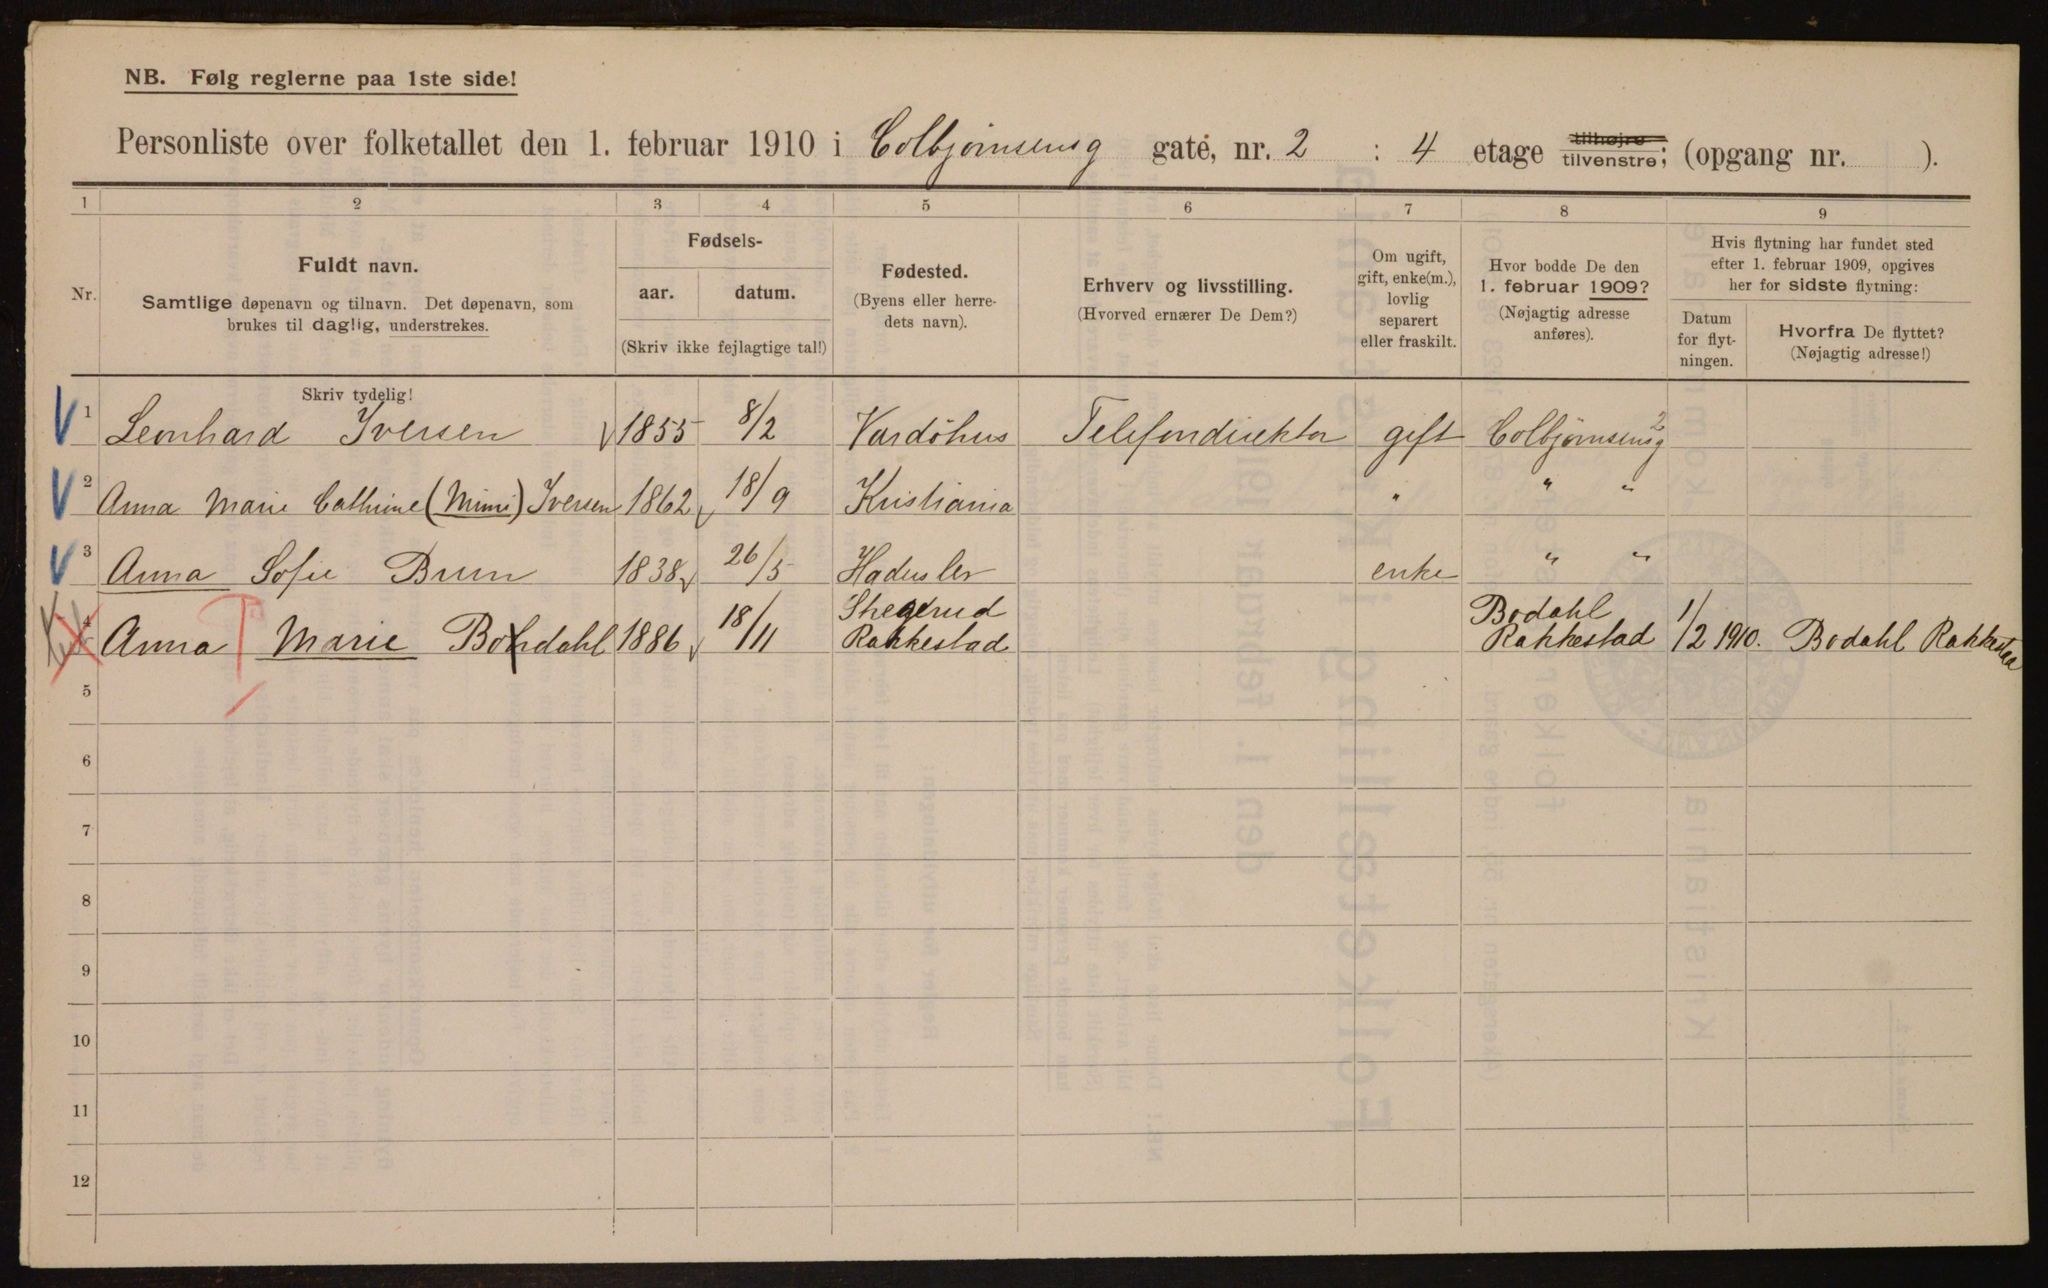 NB. Følg reglerne paa 1ste side!
Personliste over folketallet den 1. februar 1910 i Colbjørnsensg gate, nr. 2 : 4 etage tilhøjre tilvenstre; (opgang nr. ).
1 2 3 4 5 6 7 8 9
Nr.
Fuldt navn.
Samtlige døpenavn og tilnavn. Det døpenavn, som
brukes til daglig, understrekes.
Fødsels-
aar. datum.
(Skriv ikke fejlagtige tal!)
Fødested.
(Byens eller herre-
dets navn).
Erhverv og livsstilling.
(Hvorved ernærer De Dem?)
Om ugift,
gift, enke(m.),
lovlig
separert
eller fraskilt.
Hvor bodde De den
1. februar 1909?
(Nøjagtig adresse
anføres).
Hvis flytning har fundet sted
efter 1. februar 1909, opgives
her for sidste flytning:
Datum
for flyt-
ningen.
Hvorfra De flyttet?
(Nøjagtig adresse!)
Skriv tydelig!
1 Leonhard Iversen 1855 8/2 Vardöhus Telefondirektør gift Colbjørnsensg 2
2 Anna Marie Cathrine (Mimi) Iversen 1862 18/9 Kristiania " " "
3 Anna Sofie Brun 1838 26/5 Hadersler enke " "
4 Anna Marie Bondahl 1886 18/11 Rakkestad Bodahl Rakkestad 1/2 1910. Bodahl Rakkestaa
5
6
7
8
9
10
11
12